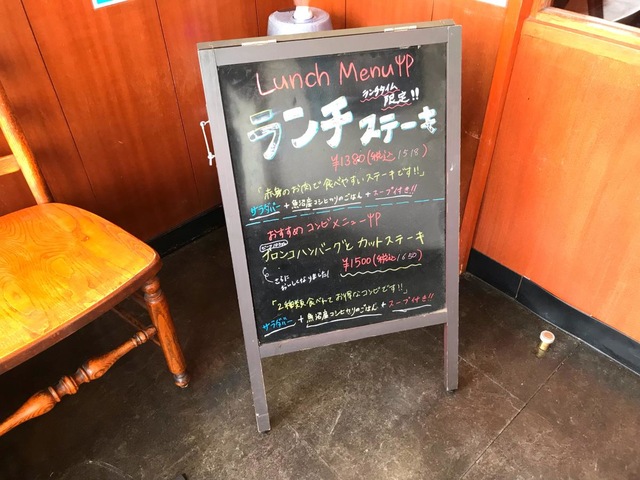 Lunch Menu
ランチタイム
限定!!
ランチ ステーキ
¥1380(税込1518)
「赤身のお肉で食べやすいステーキです!!」
サラダバー + 魚沼産コシヒカリのごはん + スープ付き!!
おすすめ コンビメニュー
ブロンコハンバーグと カットステーキ
¥1500(税込1650)
さらに
おいしくなりました!
「2種類食べれてお得なコンビです!!」
サラダバー + 魚沼産コシヒカリのごはん + スープ付き!!